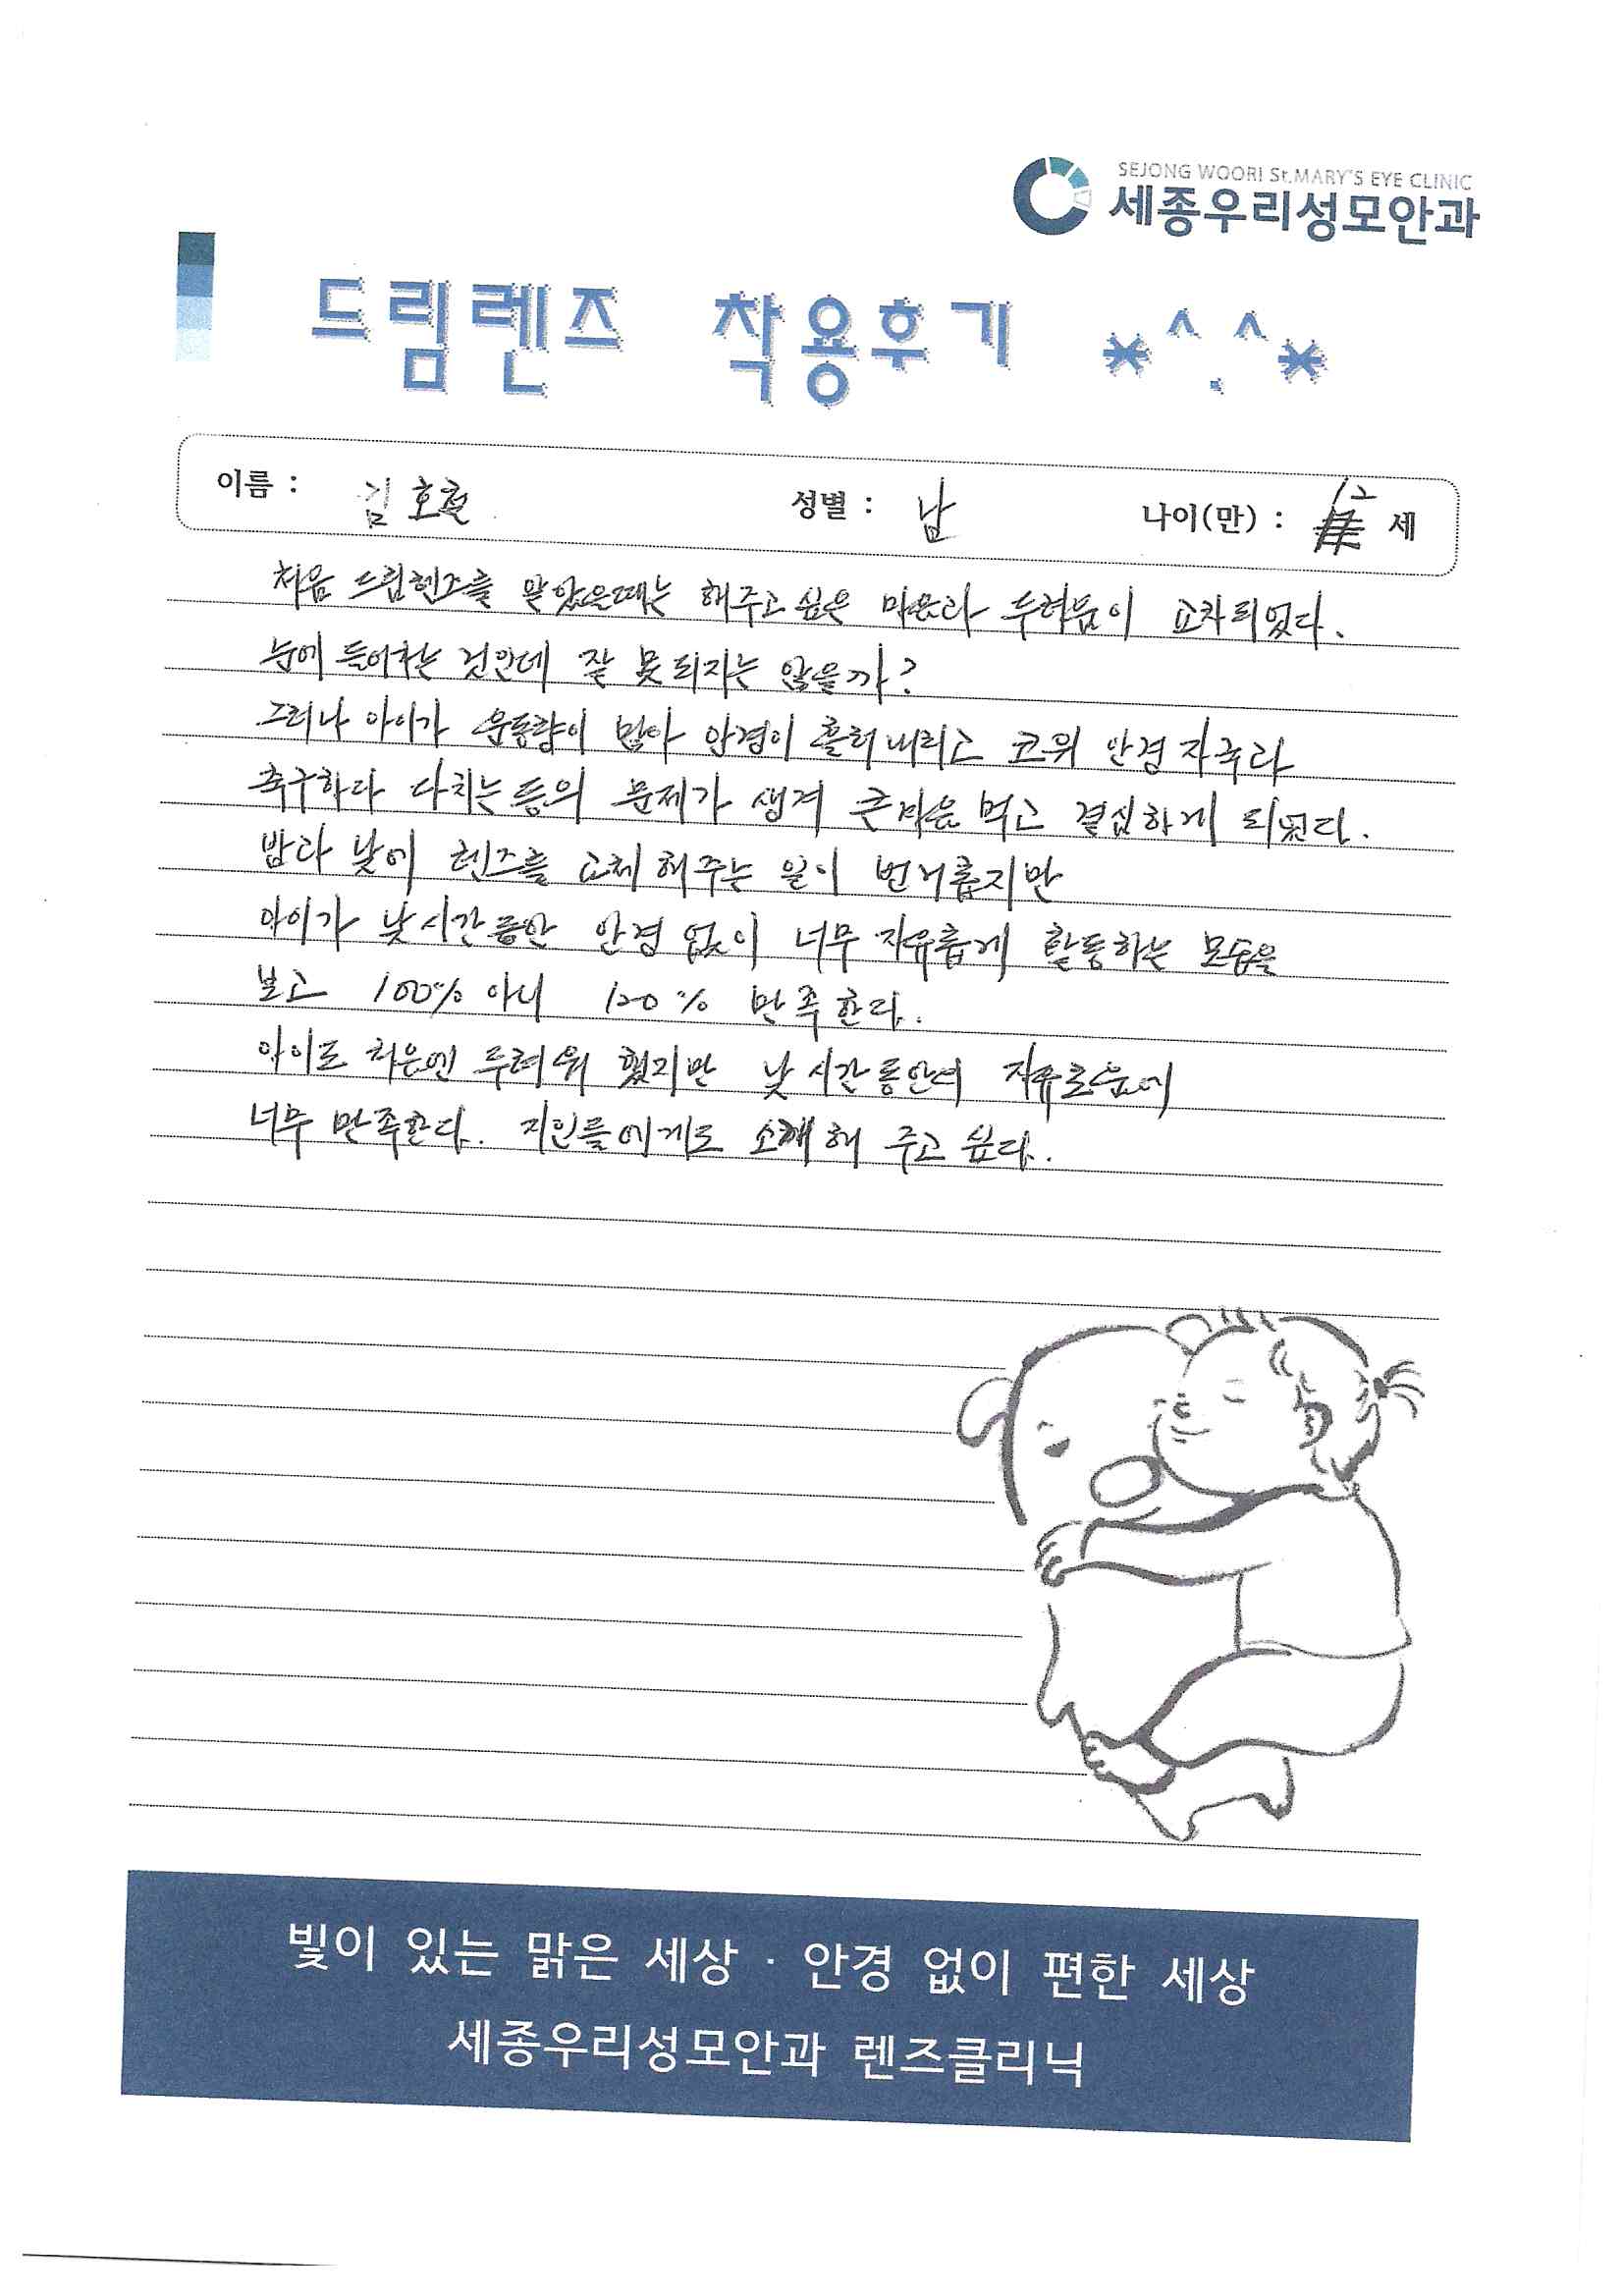 SEJONG WOORI St.MARY'S EYE CLINIC
세종우리성모안과
드림렌즈 착용후기 *^.^*
이름 : 김호 성별 : 남 나이(만) : 12 세
처음 드림렌즈를 알았을때는 해주고 싶은 마음과 두려움이 교차되었다.
눈에 들어가는 것인데 잘 못되지는 않을까?
그러나 아이가 운동량이 많아 안경이 흘러내리고 코위 안경자국과
축구하다 다치는 등의 문제가 생겨 큰마음먹고 결심하게 되었다.
밤과 낮에 렌즈를 교체해주는 일이 번거롭지만
아이가 낮시간동안 안경 없이 너무 자유롭게 활동하는 모습을
보고 100% 아니 120% 만족한다.
아이도 처음엔 두려워 했지만 낮시간동안의 자유로움에
너무 만족한다. 지인들에게도 소개해 주고 싶다.
빛이 있는 맑은 세상 · 안경 없이 편한 세상
세종우리성모안과 렌즈클리닉